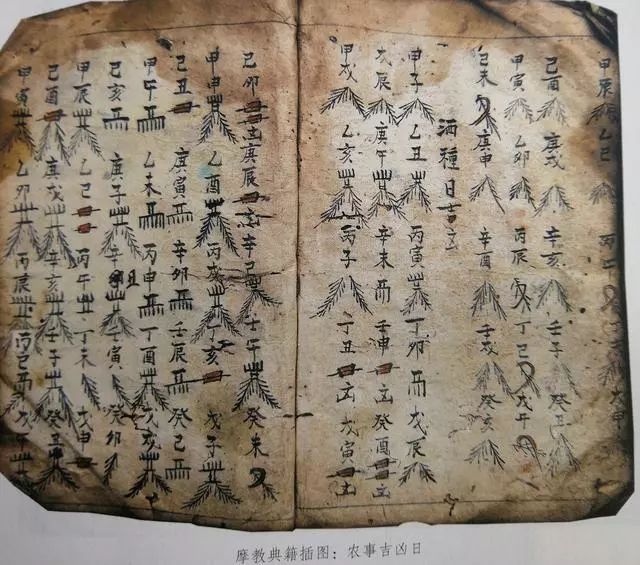 甲辰 乙巳 戊申
己酉 庚戌 辛亥 壬子 癸丑
甲寅 乙卯 丙辰 丁巳 戊午
己未 庚申 辛酉 壬戌 癸亥
洒種日吉凶
甲子 乙丑 丙寅 丁卯 戊辰
戊辰 庚午 辛未 壬申 癸酉
甲戌 乙亥 丙子 丁丑 戊寅
己卯 庚辰 辛巳 壬午 癸未
甲申 乙酉 丙戌 丁亥 戊子
己丑 庚寅 辛卯 壬辰 癸巳
甲午 乙未 丙申 丁酉 戊戌
己亥 庚子 辛丑 壬寅 癸卯
甲辰 乙巳 丙午 丁未 戊申
己酉 庚戌 辛亥 壬子 癸丑
甲寅 乙卯 丙辰 戊午
摩教典籍插图：农事吉凶日